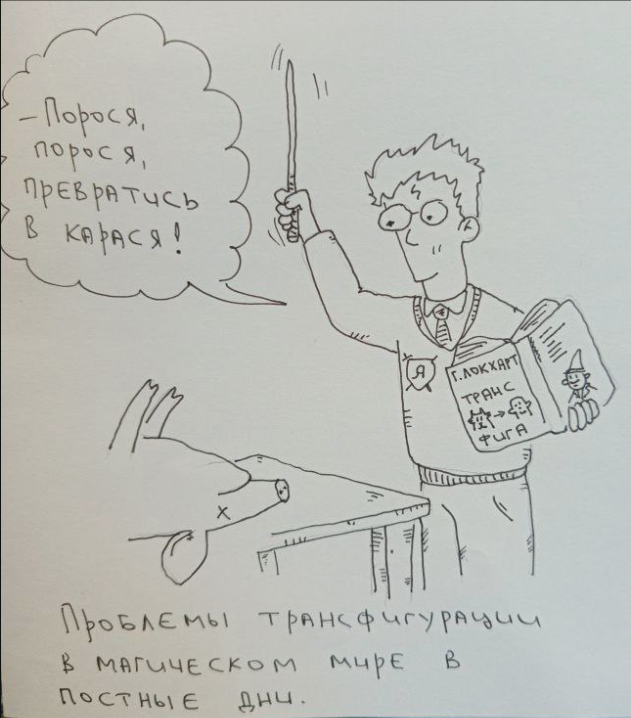 – Порося,
порося,
превратись
в карася!
Я
Г. ЛОКХАРТ
ТРАНС
ФИГА
Проблемы трансфигурации
в магическом мире в
постные дни.